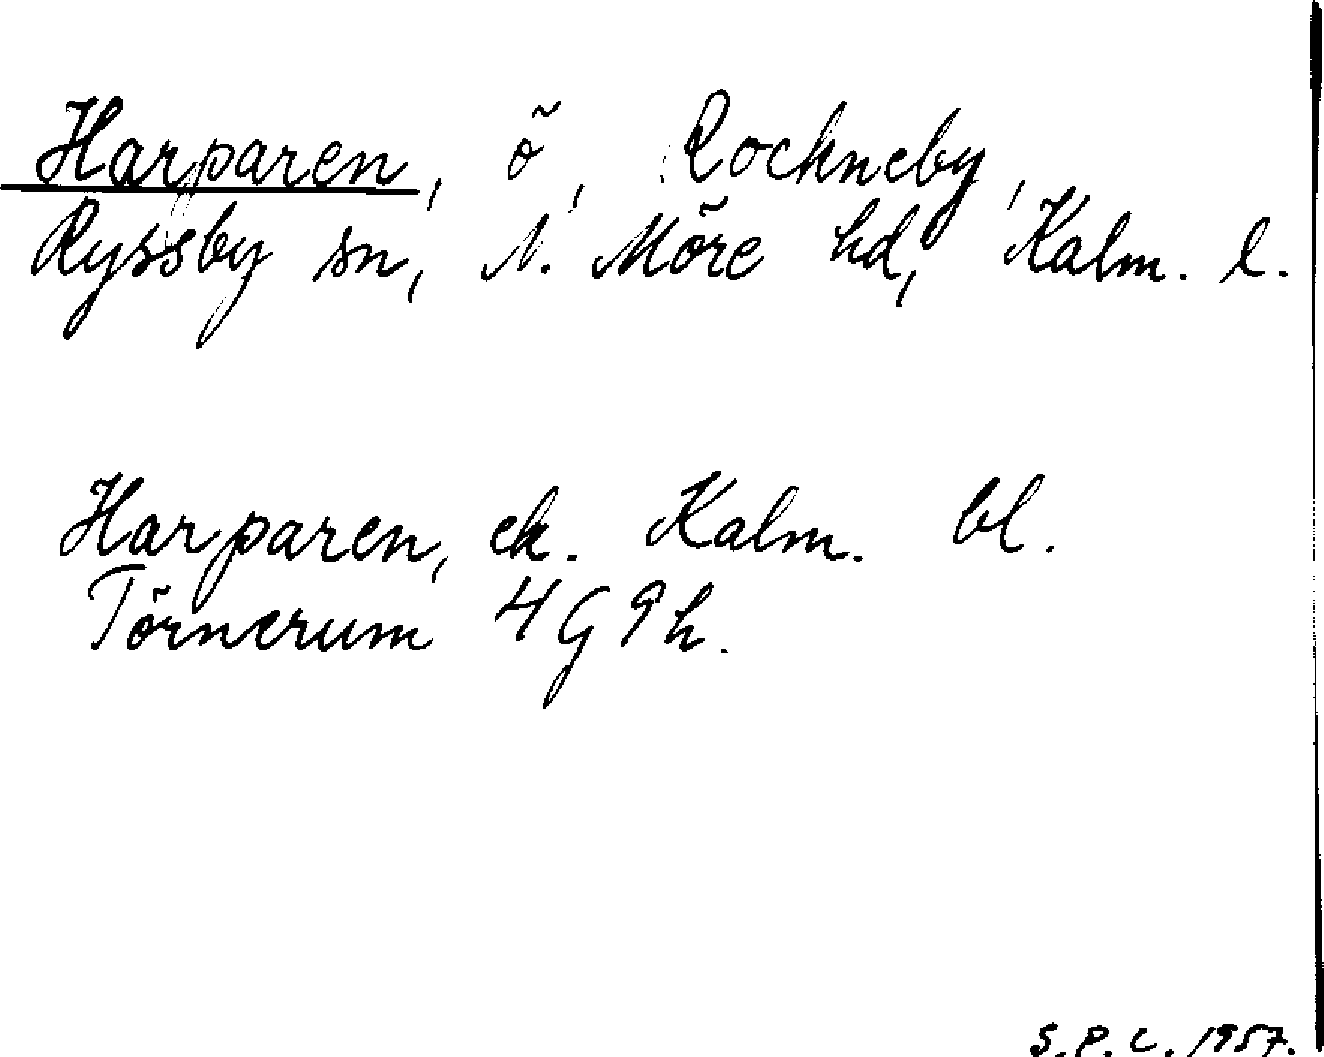 Harparen, ö, Rockneby,
Ryssby sn, N. Möre hd, Kalm. l.
Harparen, ek. Kalm. bl.
Törnerum 4G 9h.
S.P.C. 1957.